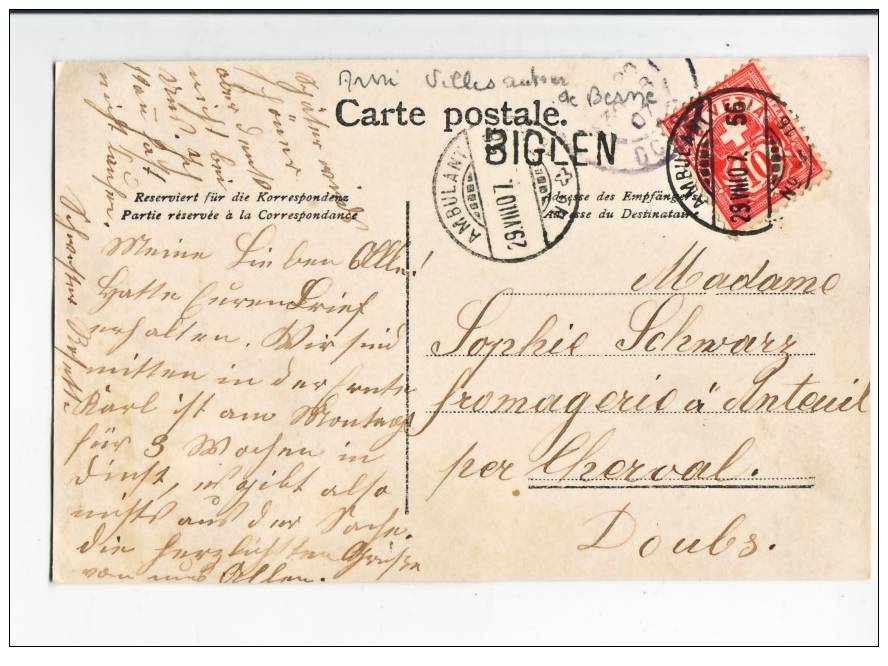 Arni Villes autour
de Berne
Carte postale.
BIGLEN
AMBULANT
29.VII.07.
HELVETIA
10
AMBULANT
56
29.VII.07.
No
Reserviert für die Korrespondenz
Partie réservée à la Correspondance
Adresse des Empfängers
Adresse du Destinataire
später wird
schöner
aber denk
nicht bei
uns.
Man hat
nicht
Meine Lieben Alle!
Hatte Euren Brief
erhalten. Wir sind
mitten in der Ernte
Karl ist am Montag
für 3 Wochen in
Dinst, es gibt also
nichts aus der Sache.
Die herzlichsten Grüße
von uns Allen.
Schwester
Madame
Sophie Schwarz
fromagerie à Anteuil
per Cherval.
Doubs.